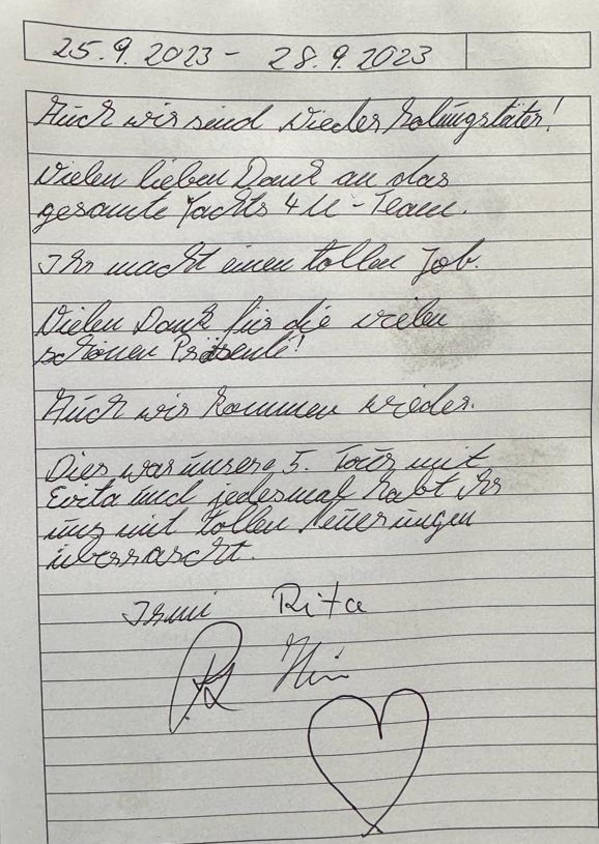 25.9.2023 - 28.9.2023
Auch wir sind Wiederholungstäter!
Vielen lieben Dank an das
gesamte Yachts 4U-Team.
Ihr macht einen tollen Job.
Vielen Dank für die vielen
schönen Präsente!
Auch wir kommen wieder.
Dies war unsere 5. Tour mit
Evita und jedesmal habt Ihr
uns mit tollen Neuerungen
überrascht.
Irmi Rita